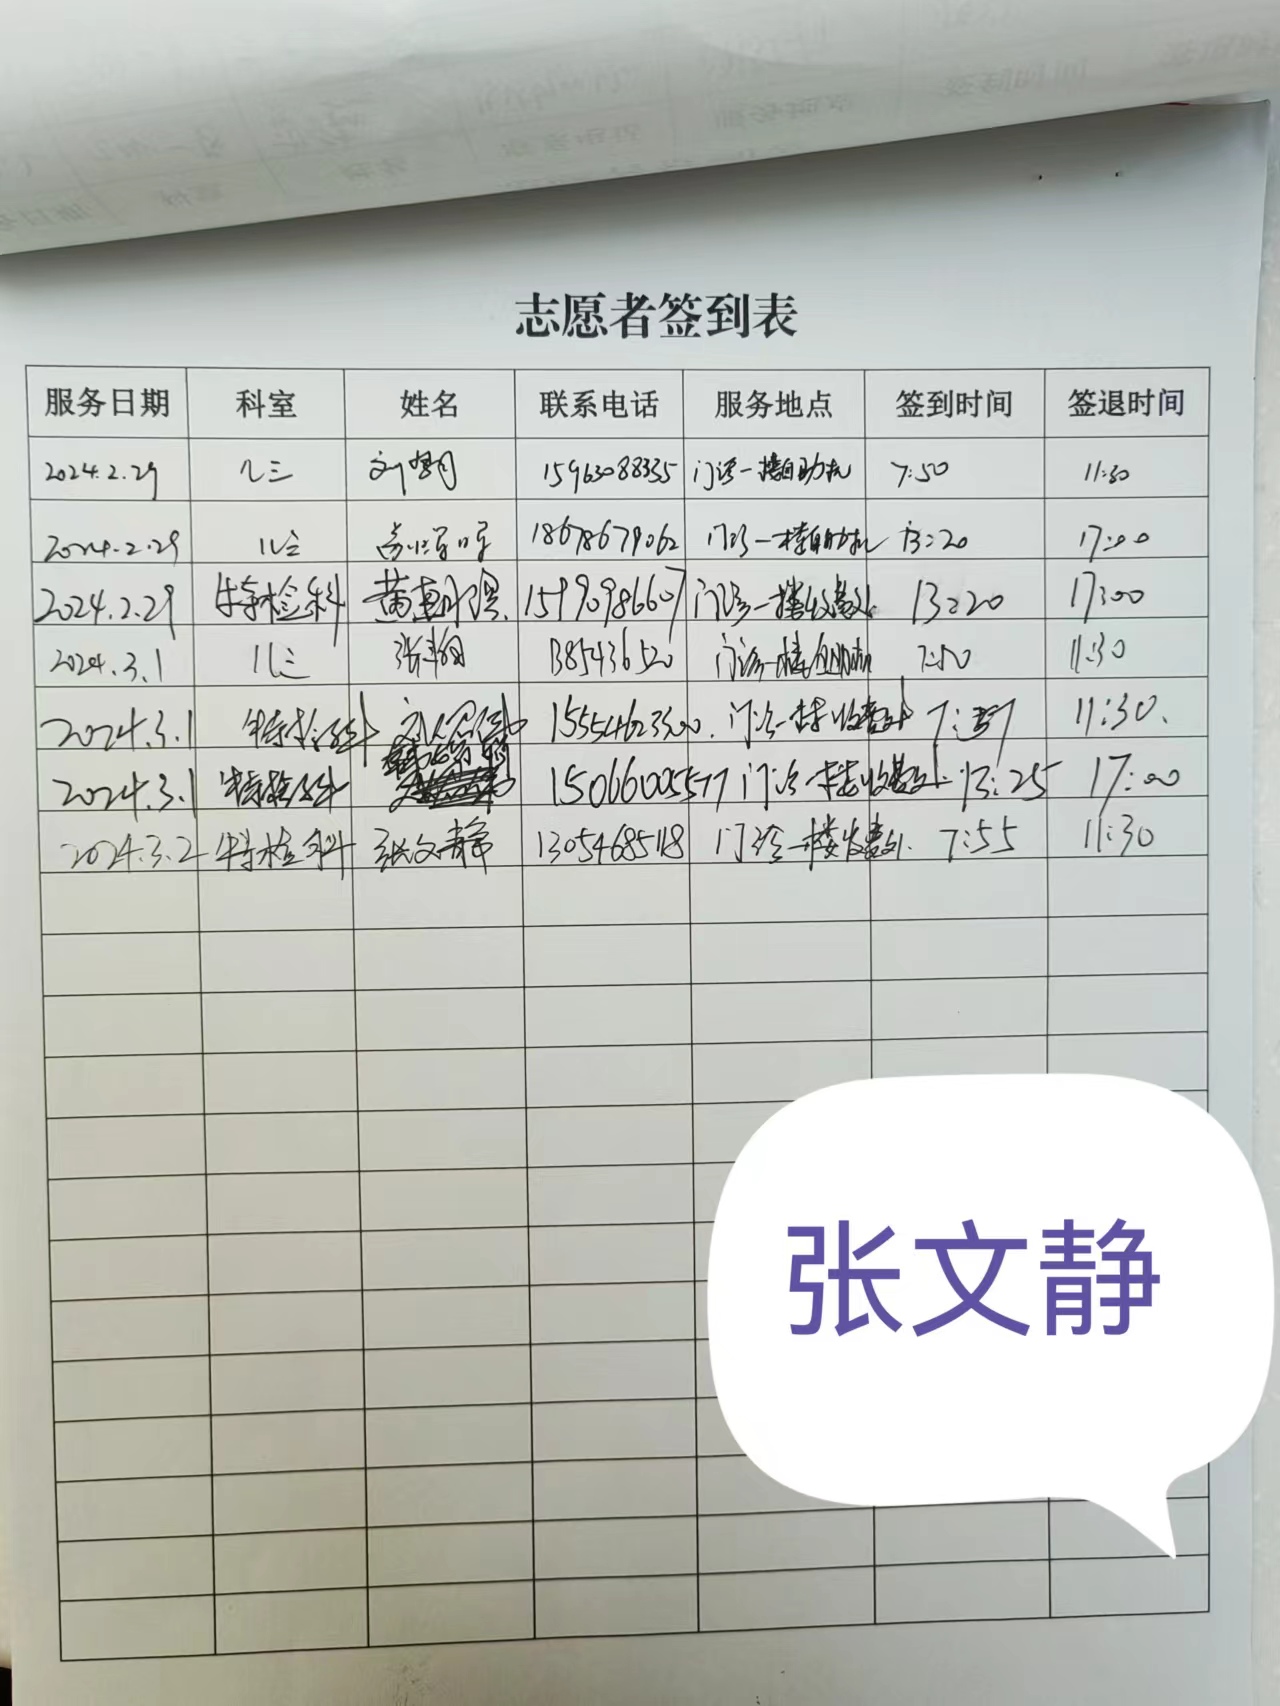 志愿者签到表
服务日期 科室 姓名 联系电话 服务地点 签到时间 签退时间
2024.2.29 儿三 刘 15963088335 门诊一楼自助机 7:50 11:30
2024.2.29 儿三 18678679062 门诊一楼自助机 13:20 17:00
2024.2.29 特检科 黄 15990986607 门诊一楼收费处 13:20 17:00
2024.3.1 儿三 张 门诊一楼自助机 7:50 11:30
2024.3.1 特检科 刘 15554623500. 门诊一楼收费处 7:57 11:30.
2024.3.1 特检科 15066005577 门诊一楼收费处 13:25 17:00
2024.3.2 特检科 张文静 13054685118 门诊一楼收费处. 7:55 11:30
张文静